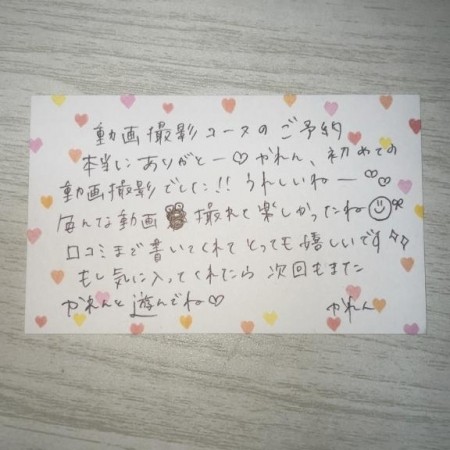 動画撮影コースのご予約
本当にありがとー♡かれん、初めての
動画撮影でした!! うれしいねー♡♡
な動画 撮れて楽しかったね
口コミまで書いてくれてとっても嬉しいです
もし気に入ってくれたら次回もまた
かれんと遊んでね♡
かれん